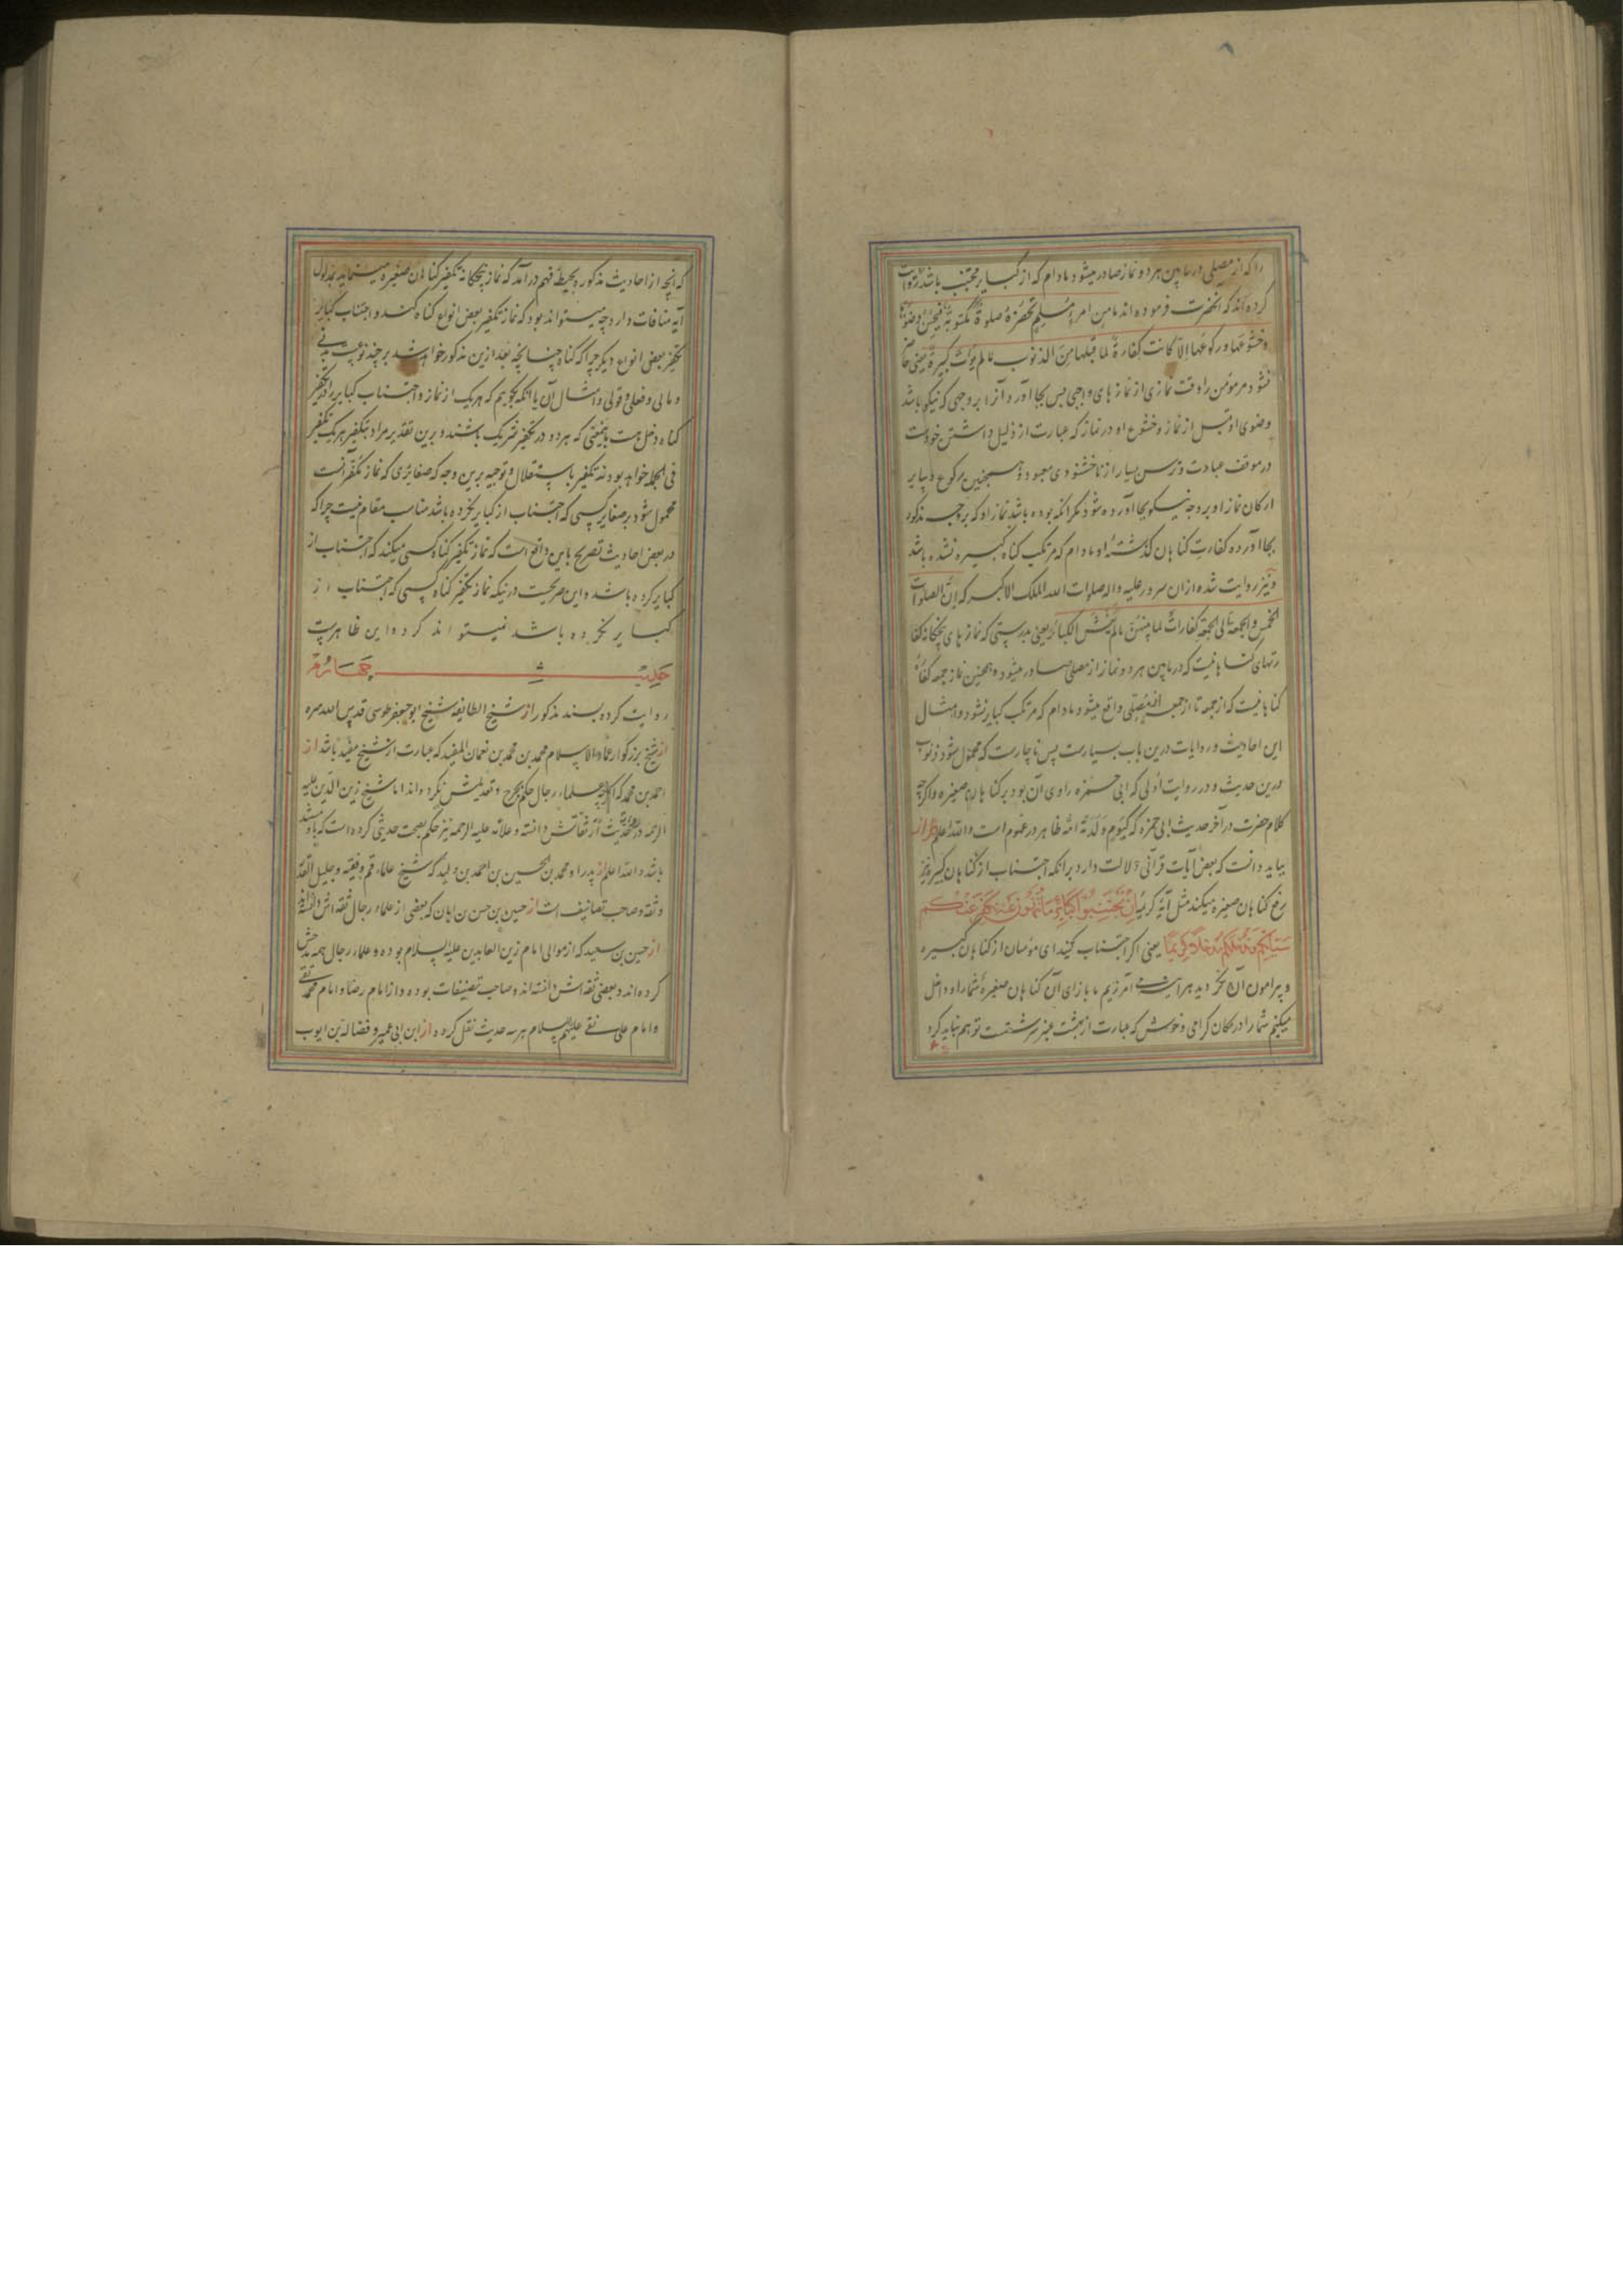 را که از مصلی در مابین هر دو نماز صادر میشود مادام که از کبایر مجتنب باشد و روایت
کرده اند که انحضرت فرموده اند ما من امرءٍ مُسلِمٍ تحضرُهُ صلوةٌ مکتوبةٌ فیحسنُ وضوءَها
و خشوعَها و رکوعَها اِلّا کانت کفارةً لما قبلها مِنَ الذنوب مالم یؤت کبیرةً یعنی حاضر
نشود مر مؤمن را وقت نمازی از نمازهای واجبی پس بجا آورد آنرا بر وجهی که نیکو باشد
وضوی او قبل از نماز و خشوع او در نماز که عبارت از ذلیل داشتن خودست
در موقف عبادت و ترس بسیار از ناخشنودی معبود و همچنین رکوع و سایر
ارکان نماز او بر وجه نیکو بجا آورده شود مکر انکه بوده باشد نماز او که بر وجه مذکور
بجا آورده کفارت کناهان کذشتهٔ او مادام که مرتکب کناه کبیره نشده باشد
و نیز روایت شده از ان سرور علیه و اله صلوات الله الملک الاکبر که اِنّ الصلوات
الخمس و الجمعة الی الجمعة کفاراتٌ لما بینهنّ مالم یغش الکبائر یعنی بدرستی که نماز های پنجکانه کفا
رتهای کناهانیست که در مابین هر دو نماز از مصلی صادر میشود و همچنین نماز جمعه کفارهٔ
کناهانیست که از جمعه تا جمعه از مصلی واقع میشود مادام که مرتکب کبایر نشود و امثال
این احادیث و روایات درین باب بسیارست پس ناچارست که محمول شود ذنوب
درین حدیث و در روایت اولی که ابی حمزه راوی آن بود بر کناهان صغیره و اکرچه
کلام حضرت در آخر حدیث ابی حمزه که کیوم ولدته امّه ظاهر در عموم است و الله اعلم
بباید دانست که بعض آیات قرآنی دلالت دارد برانکه اجتناب از کناهان کبیره نیز
رفع کناهان صغیره میکند مثل آیهٔ کریمهٔ اِنْ تَجْتَنِبُوا کَبَائِرَ مَا تُنْهَوْنَ عَنْهُ نُکَفِّرْ عَنْکُم
سَیِّئَاتِکُمْ وَنُدْخِلْکُم مُدْخَلًا کَرِیمًا یعنی اکر اجتناب کنید ای مؤمنان از کناهان کبیره
و پیرامون آن نکردید هر اینه می آمرزیم ما بازای آن کناهان صغیرهٔ شما را و داخل
میکنیم شما را در مکان کرامی و خوش که عبارت از بهشت عنبر سرشتست توهم نباید کرد
که انچه از احادیث مذکوره بحیطهٔ فهم درآمد که نماز پنجکانه تکفیر کناهان صغیره مینماید بمدلول
آیه منافات دارد چه میتواند بود که نماز تکفیر بعض انواع کناه کند و اجتناب کبایر
تکفیر بعض انواع دیکر چرا که کناه چنانچه بعد ازین مذکور خواهد شد بر چند نوعست بدنی
و مالی و فعلی و قولی و امثال آن یا انکه بکوییم که هر یک از نماز و اجتناب کبایر را در تکفیر
کناه دخل هست باینمعنی که هر دو در تکفیر شریک باشند و برین تقدیر مراد بتکفیر هر یک تکفیر
فی الجمله خواهد بود نه تکفیر باستقلال و توجیه برین وجه که صغایری که نماز مکفّر آنست
محمول شود بر صغایر کسی که اجتناب از کبایر نکرده باشد مناسب مقام نیست چرا که
در بعض احادیث تصریح باین واقع است که نماز تکفیر کناه کسی میکند که اجتناب از
کبایر کرده باشد و این صریحست درینکه نماز تکفیر کناه کسی که اجتناب از
کبایر نکرده باشد نمیتواند کرد و این ظاهرست
حدیث چهارم
روایت کرده بسند مذکور از شیخ الطایفه شیخ ابو جعفر طوسی قدس الله سره
از شیخ بزرکوار عماد الاسلام محمد بن محمد بن نعمان المفید که عبارت از شیخ مفید باشد از
احمد بن محمد که اکرچه علماء رجال حکم بجرح و تعدیلش نکرده اند اما شیخ زین الدین علیه
الرحمه در درایة حدیث از ثقاتش دانسته و علامه علیه الرحمه نیز حکم بصحت حدیثی کرده است که با او مستند
باشد و الله اعلم از پدر او محمد بن الحسین بن احمد بن ولید که شیخ علماء قم و فقیه و جلیل القدر
و ثقه و صاحب تصانیف است از حسین بن حسن بن ابان که بعضی از علماء رجال ثقه اش دانسته اند
از حسین بن سعید که از موالی امام زین العابدین علیه السلام بوده و علماء رجال همه مدحش
کرده اند و بعضی ثقه اش دانسته اند و صاحب تصنیفات بوده و از امام رضا و امام محمد تقی
و امام علی نقی علیهم السلام هر سه حدیث نقل کرده و از ابن ابی عمیر و فضالة بن ایوب